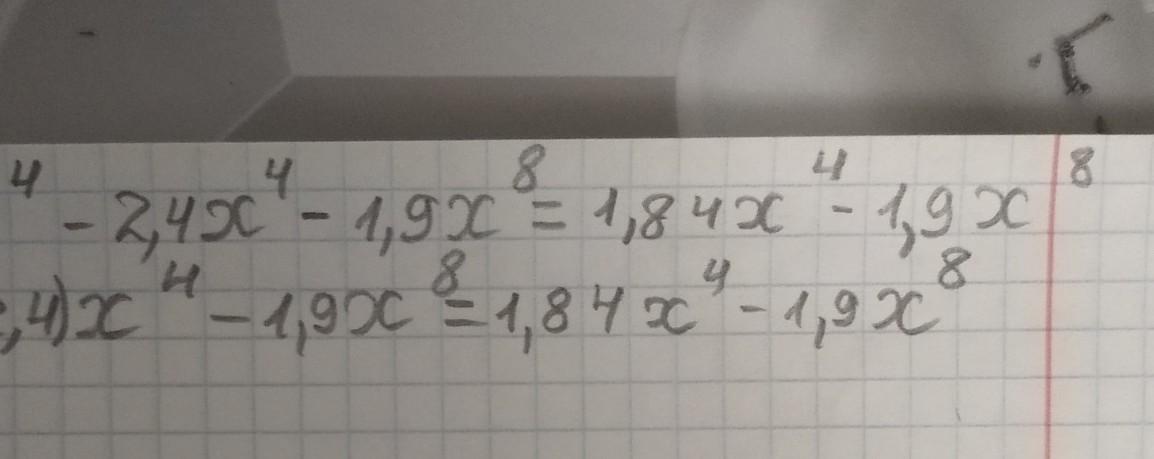 ⁴ - 2,4x⁴ - 1,9x⁸ = 1,84x⁴ - 1,9x⁸
,4)x⁴ - 1,9x⁸ = 1,84x⁴ - 1,9x⁸